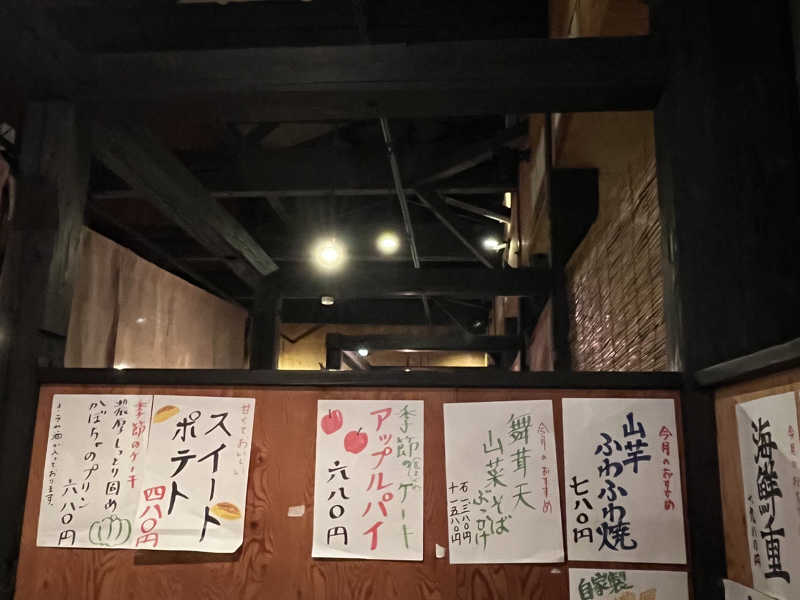 季節のケーキ
濃厚しっとり固め
かぼちゃのプリン
六八〇円
ラム酒が入っております。
甘くておいしい
スイート
ポテト
四八〇円
季節の
アップルパイ
六八〇円
今月のおすすめ
舞茸天
山菜そば
ぶっかけ
石 一三八〇円
十 一五八〇円
今月のおすすめ
山芋
ふわふわ焼
七八〇円
今月のおすすめ
海鮮重
自家製